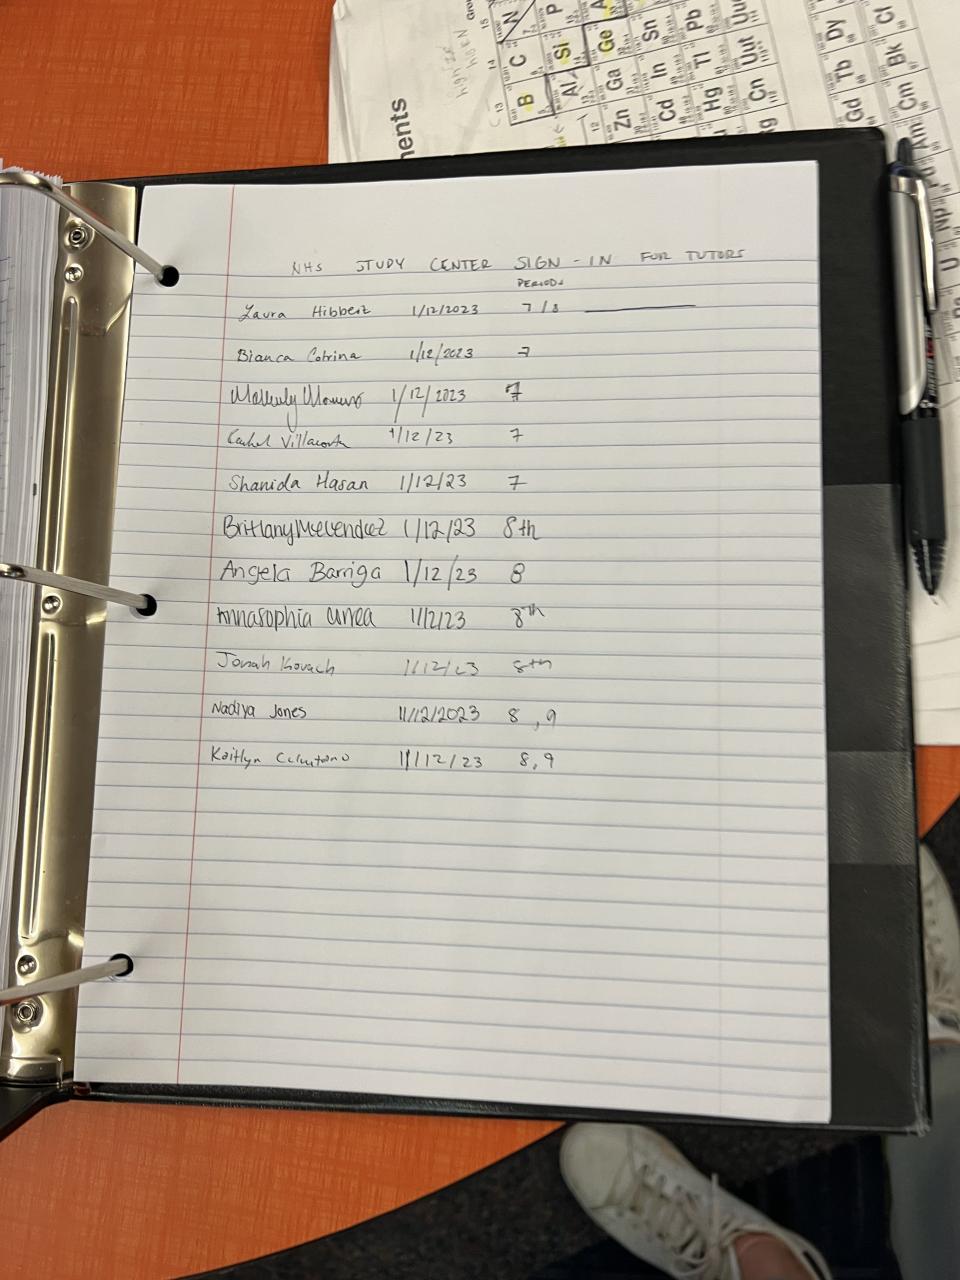 NHS STUDY CENTER SIGN-IN FOR TUTORS
PERIODS
Laura Hibbert 1/12/2023 7/8
Bianca Cotrina 1/12/2023 7
1/12/2023 7
1/12/23 7
Shanida Hasan 1/12/23 7
Brittany Melendez 1/12/23 8th
Angela Barriga 1/12/23 8
Annasophia Urrea 1/12/23 8th
Jonah Kovach 1/12/23 8th
Nadiya Jones 1/12/2023 8, 9
Kaitlyn 1/12/23 8, 9
ents
13 14 15
B C N
Al Si P
12 Zn Ga Ge
Cd In Sn
Hg Tl Pb
Cn Uut
Gd Tb Dy
Cm Bk
Am
Np
U